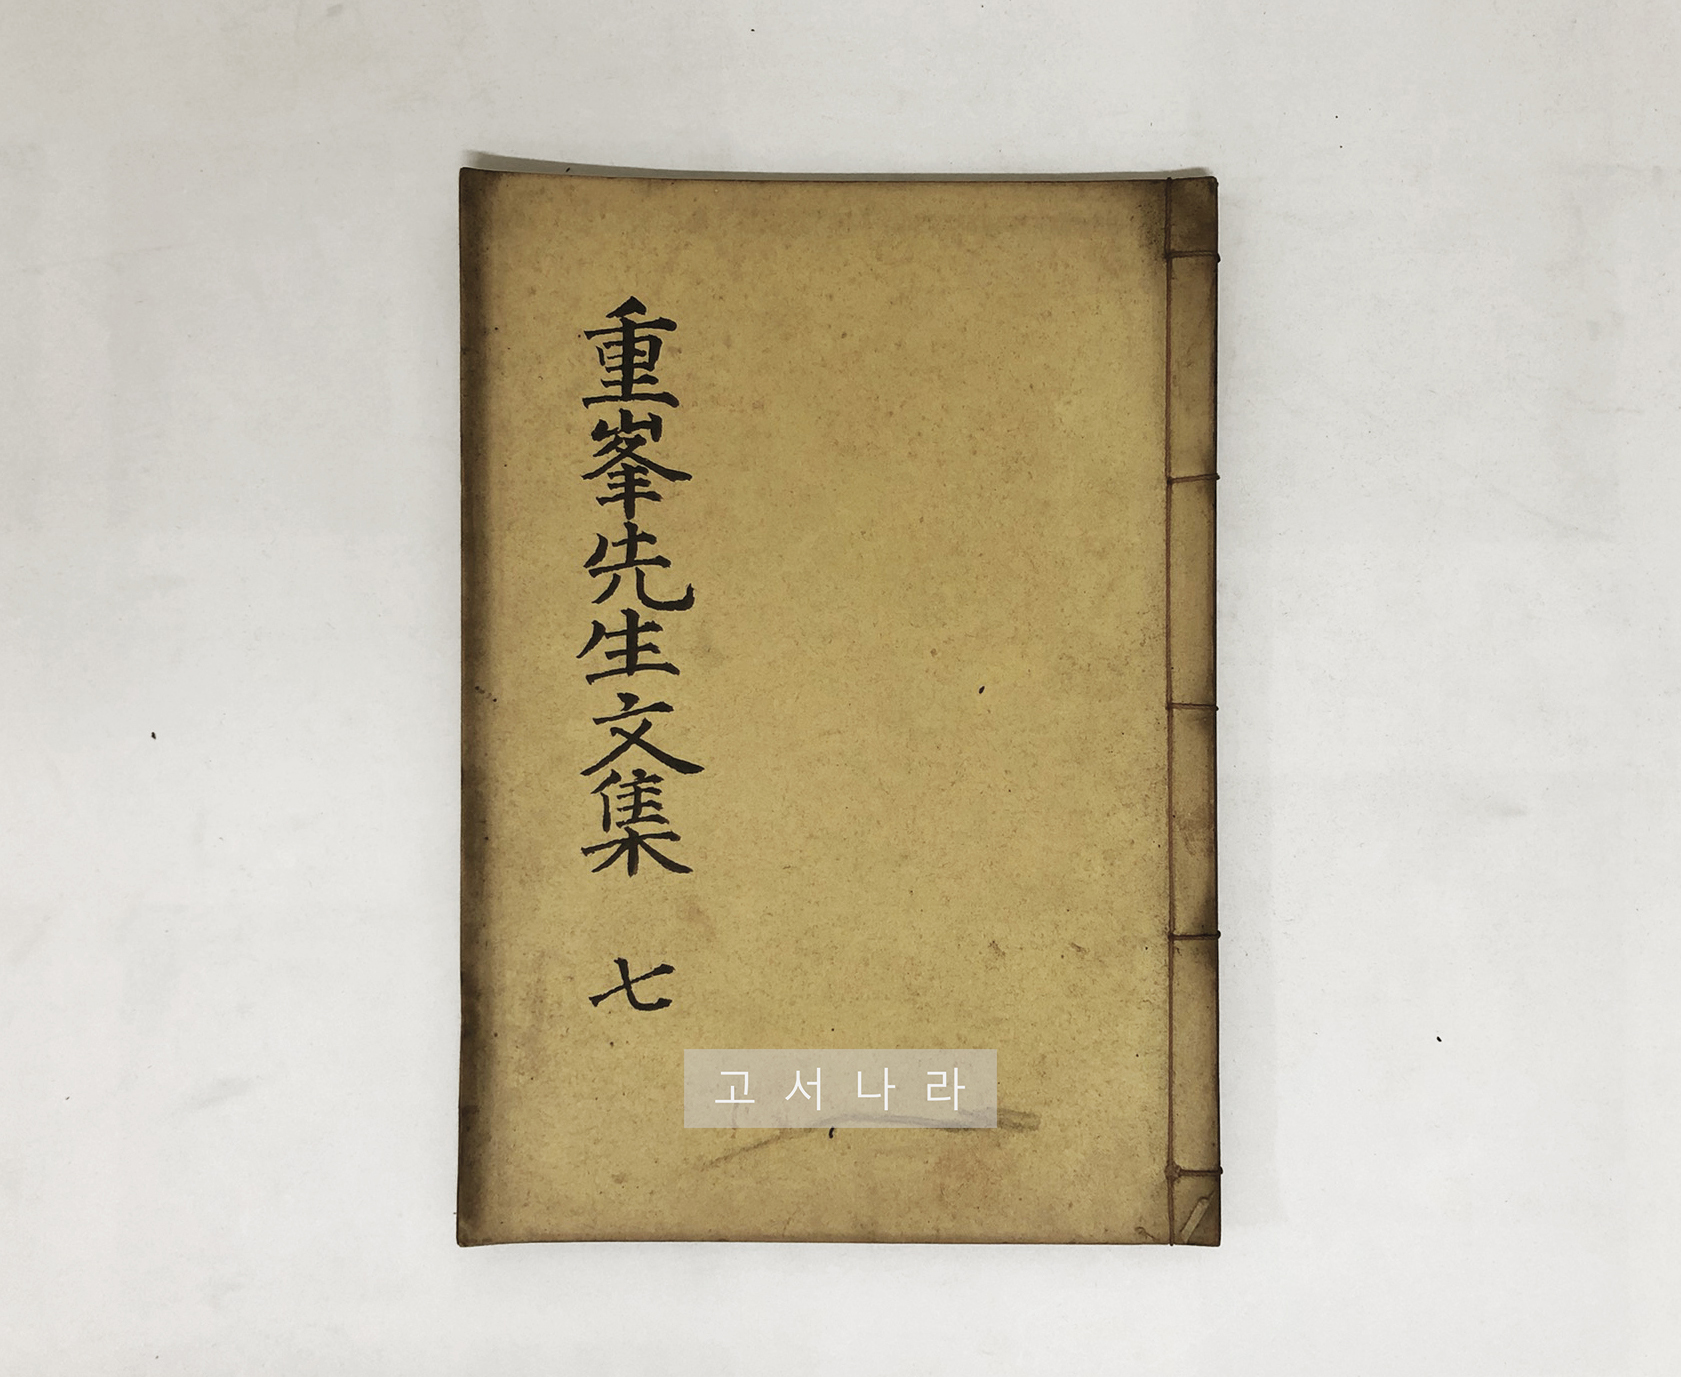 重峯先生文集 七
고서나라